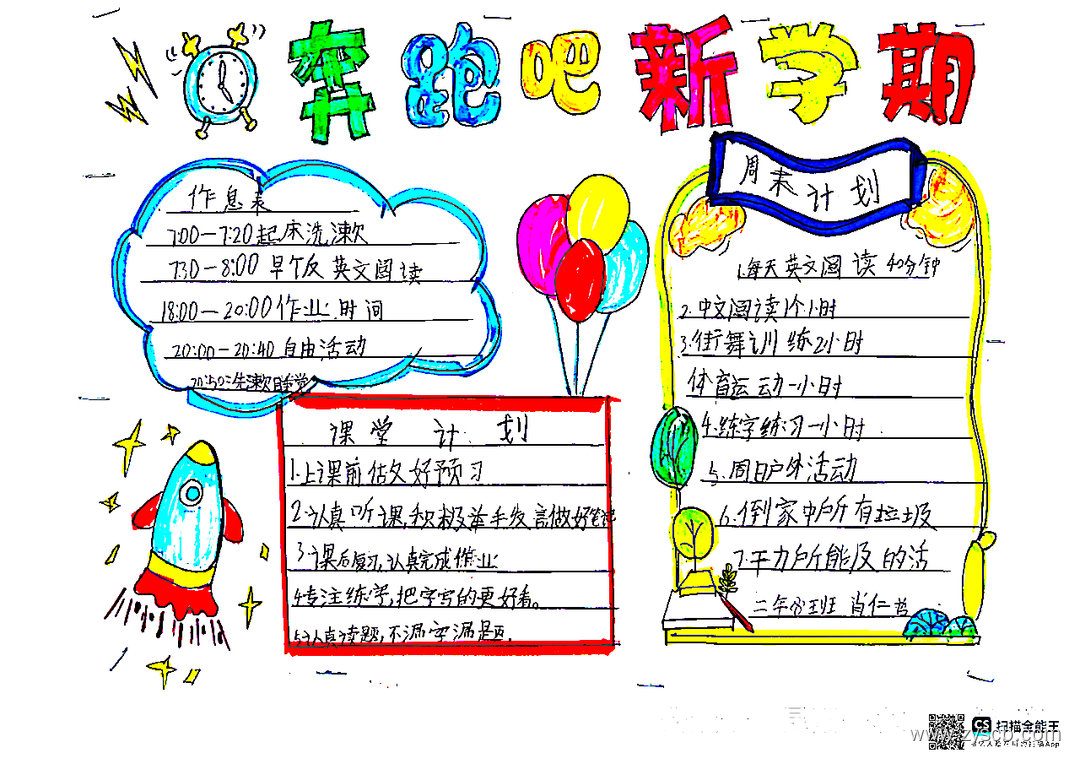 奔跑吧新学期
作息表
7:00—7:20起床洗漱
7:30—8:00早饭英文阅读
18:00—20:00作业时间
20:00—20:40自由活动
20:50洗漱睡觉
课堂计划
1.上课前做好预习
2.认真听课,积极举手发言做好笔记
3.课后复习,认真完成作业
4专注练字,把字写的更好看。
5.认真读题,不漏字漏题.
周末计划
1.每天英文阅读40分钟
2.中文阅读1个小时
3.街舞训练2小时
体育运动一小时
4.练字练习一小时.
5.周日户外活动
6.倒家中所有垃圾
7.干力所能及的活
二年 班 肖仁
CS 扫描全能王
www.zyscb.com